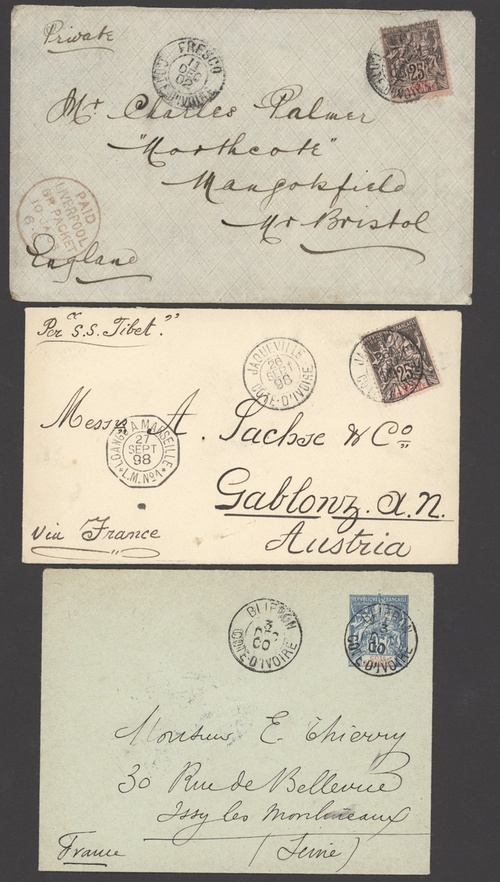 Private
FRESCO
11
DEC
02
CÔTE D'IVOIRE
25
Mr Charles Palmer
"Northcote"
Mangotsfield
Nr Bristol
England
PAID
LIVERPOOL
BR PACKET
Per "S.S. Tibet."
JAQUEVILLE
26
SEPT
98
CÔTE-D'IVOIRE
25
Messrs A. Sachse & Co
Gablonz a.N.
Austria
via France
LOANGO A MARSEILLE
27
SEPT
98
L.M. No 1
BLIERON
3
DEC
00
CÔTE-D'IVOIRE
REPUBLIQUE FRANCAISE
BLIERON
3
00
CÔTE-D'IVOIRE
Monsieur E. Thierry
30 Rue de Bellevue
Issy les Moulineaux
(Seine)
France